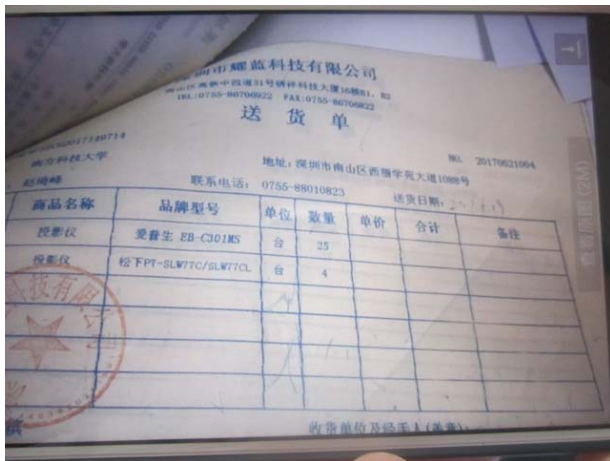 圳市耀蓝科技有限公司
南山区高新中四道31号研祥科技大厦16楼B1、B2
TEL:0755-86706922 FAX:0755-86706822
送货单
NO. 20170621004
南方科技大学
地址：深圳市南山区西丽学苑大道1088号
联系电话： 0755-88010823
送货日期：
商品名称 品牌型号 单位 数量 单价 合计 备注
投影仪 爱普生 EB-C301MS 台 25
投影仪 松下PT-SLW77C/SLW77CL 台 4
科技有限公司
收货单位及经手人(盖章)：
查看原图(2M)